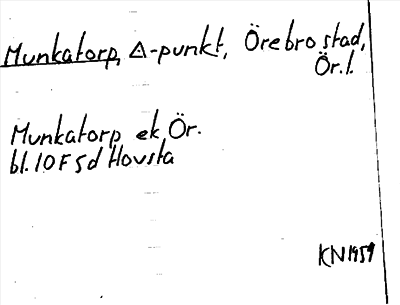 Munkatorp, Δ-punkt, Örebro stad,
Ör. l.
Munkatorp ek. Ör.
bl. 10F5d Hovsta
KN 1959